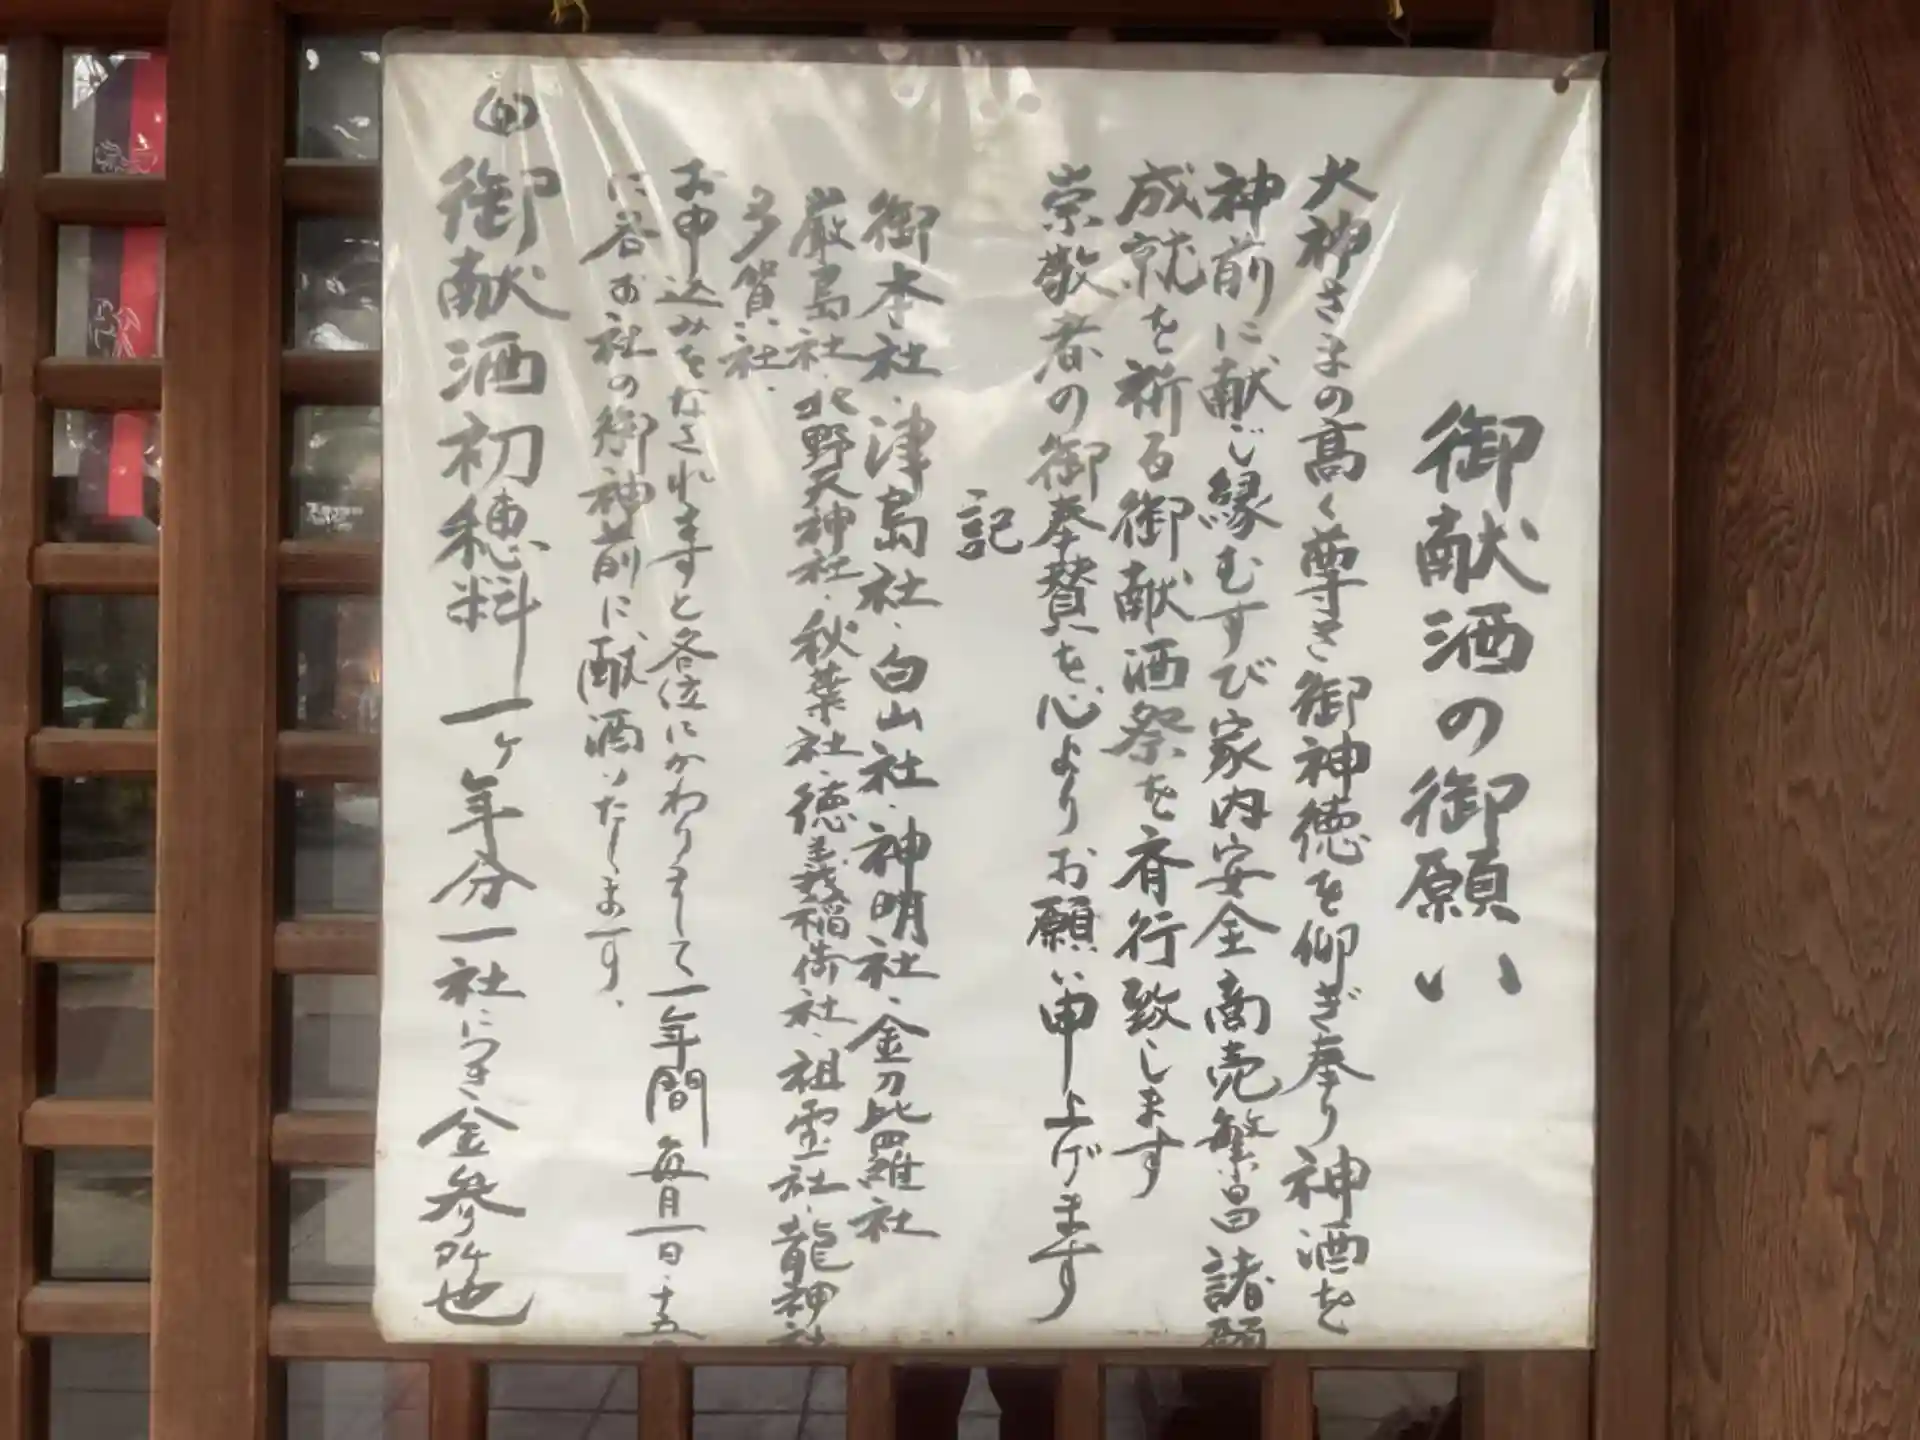 御献酒の御願い
大神さまの高く尊き御神徳を仰ぎ奉り神酒を
神前に献じ縁むすび家内安全商売繁昌諸願
成就を祈る御献酒祭を斉行致します
崇敬者の御奉賛を心よりお願い申し上げます
記
御本社、津島社、白山社、神明社、金刀比羅社
厳島社、北野天神社、秋葉社、徳義稲荷社、祖霊社、龍神社
多賀社、
お申込みをなされますと各位にかわりまして一年間毎月一日・十五
に各お社の御神前に献酒いたします、
御献酒初穂料一ヶ年分一社につき金参阡也